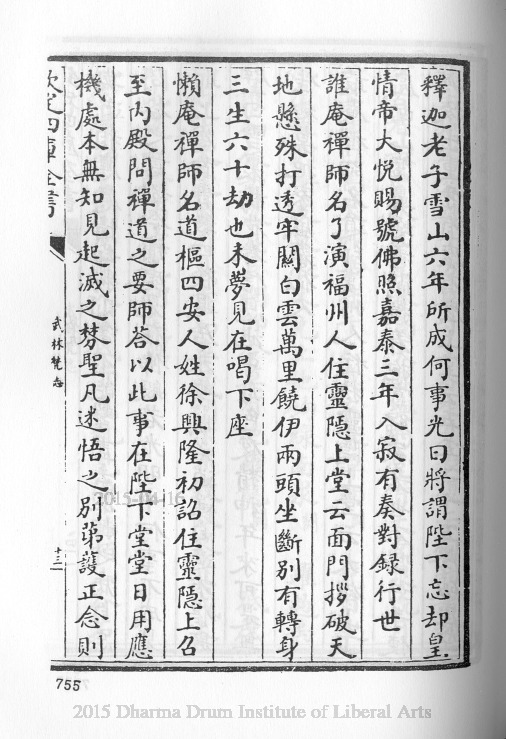 釋迦老子雪山六年所成何事光曰將謂陛下忘却皇
情帝大悅賜號佛照嘉泰三年入寂有奏對録行世
誰庵禪師名了演福州人住靈隱上堂云面門拶破天
地懸殊打透牢關白雲萬里饒伊兩頭坐斷別有轉身
三生六十劫也未夢見在喝下座
懶庵禪師名道樞四安人姓徐興隆初詔住靈隱上召
至内殿問禪道之要師答以此事在陛下堂堂日用應
機處本無知見起滅之棼聖凡迷悟之別第䕶正念則
欽定四庫全書
武林梵志
十三
755
2015-04-16
2015 Dharma Drum Institute of Liberal Arts